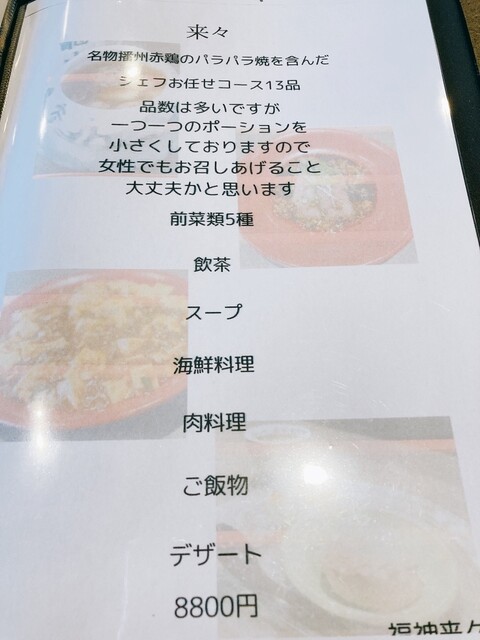 来々
名物播州赤鶏のバラバラ焼を含んだ
シェフお任せコース13品
品数は多いですが
一つ一つのポーションを
小さくしておりますので
女性でもお召しあげること
大丈夫かと思います
前菜類5種
飲茶
スープ
海鮮料理
肉料理
ご飯物
デザート
8800円
福神来々